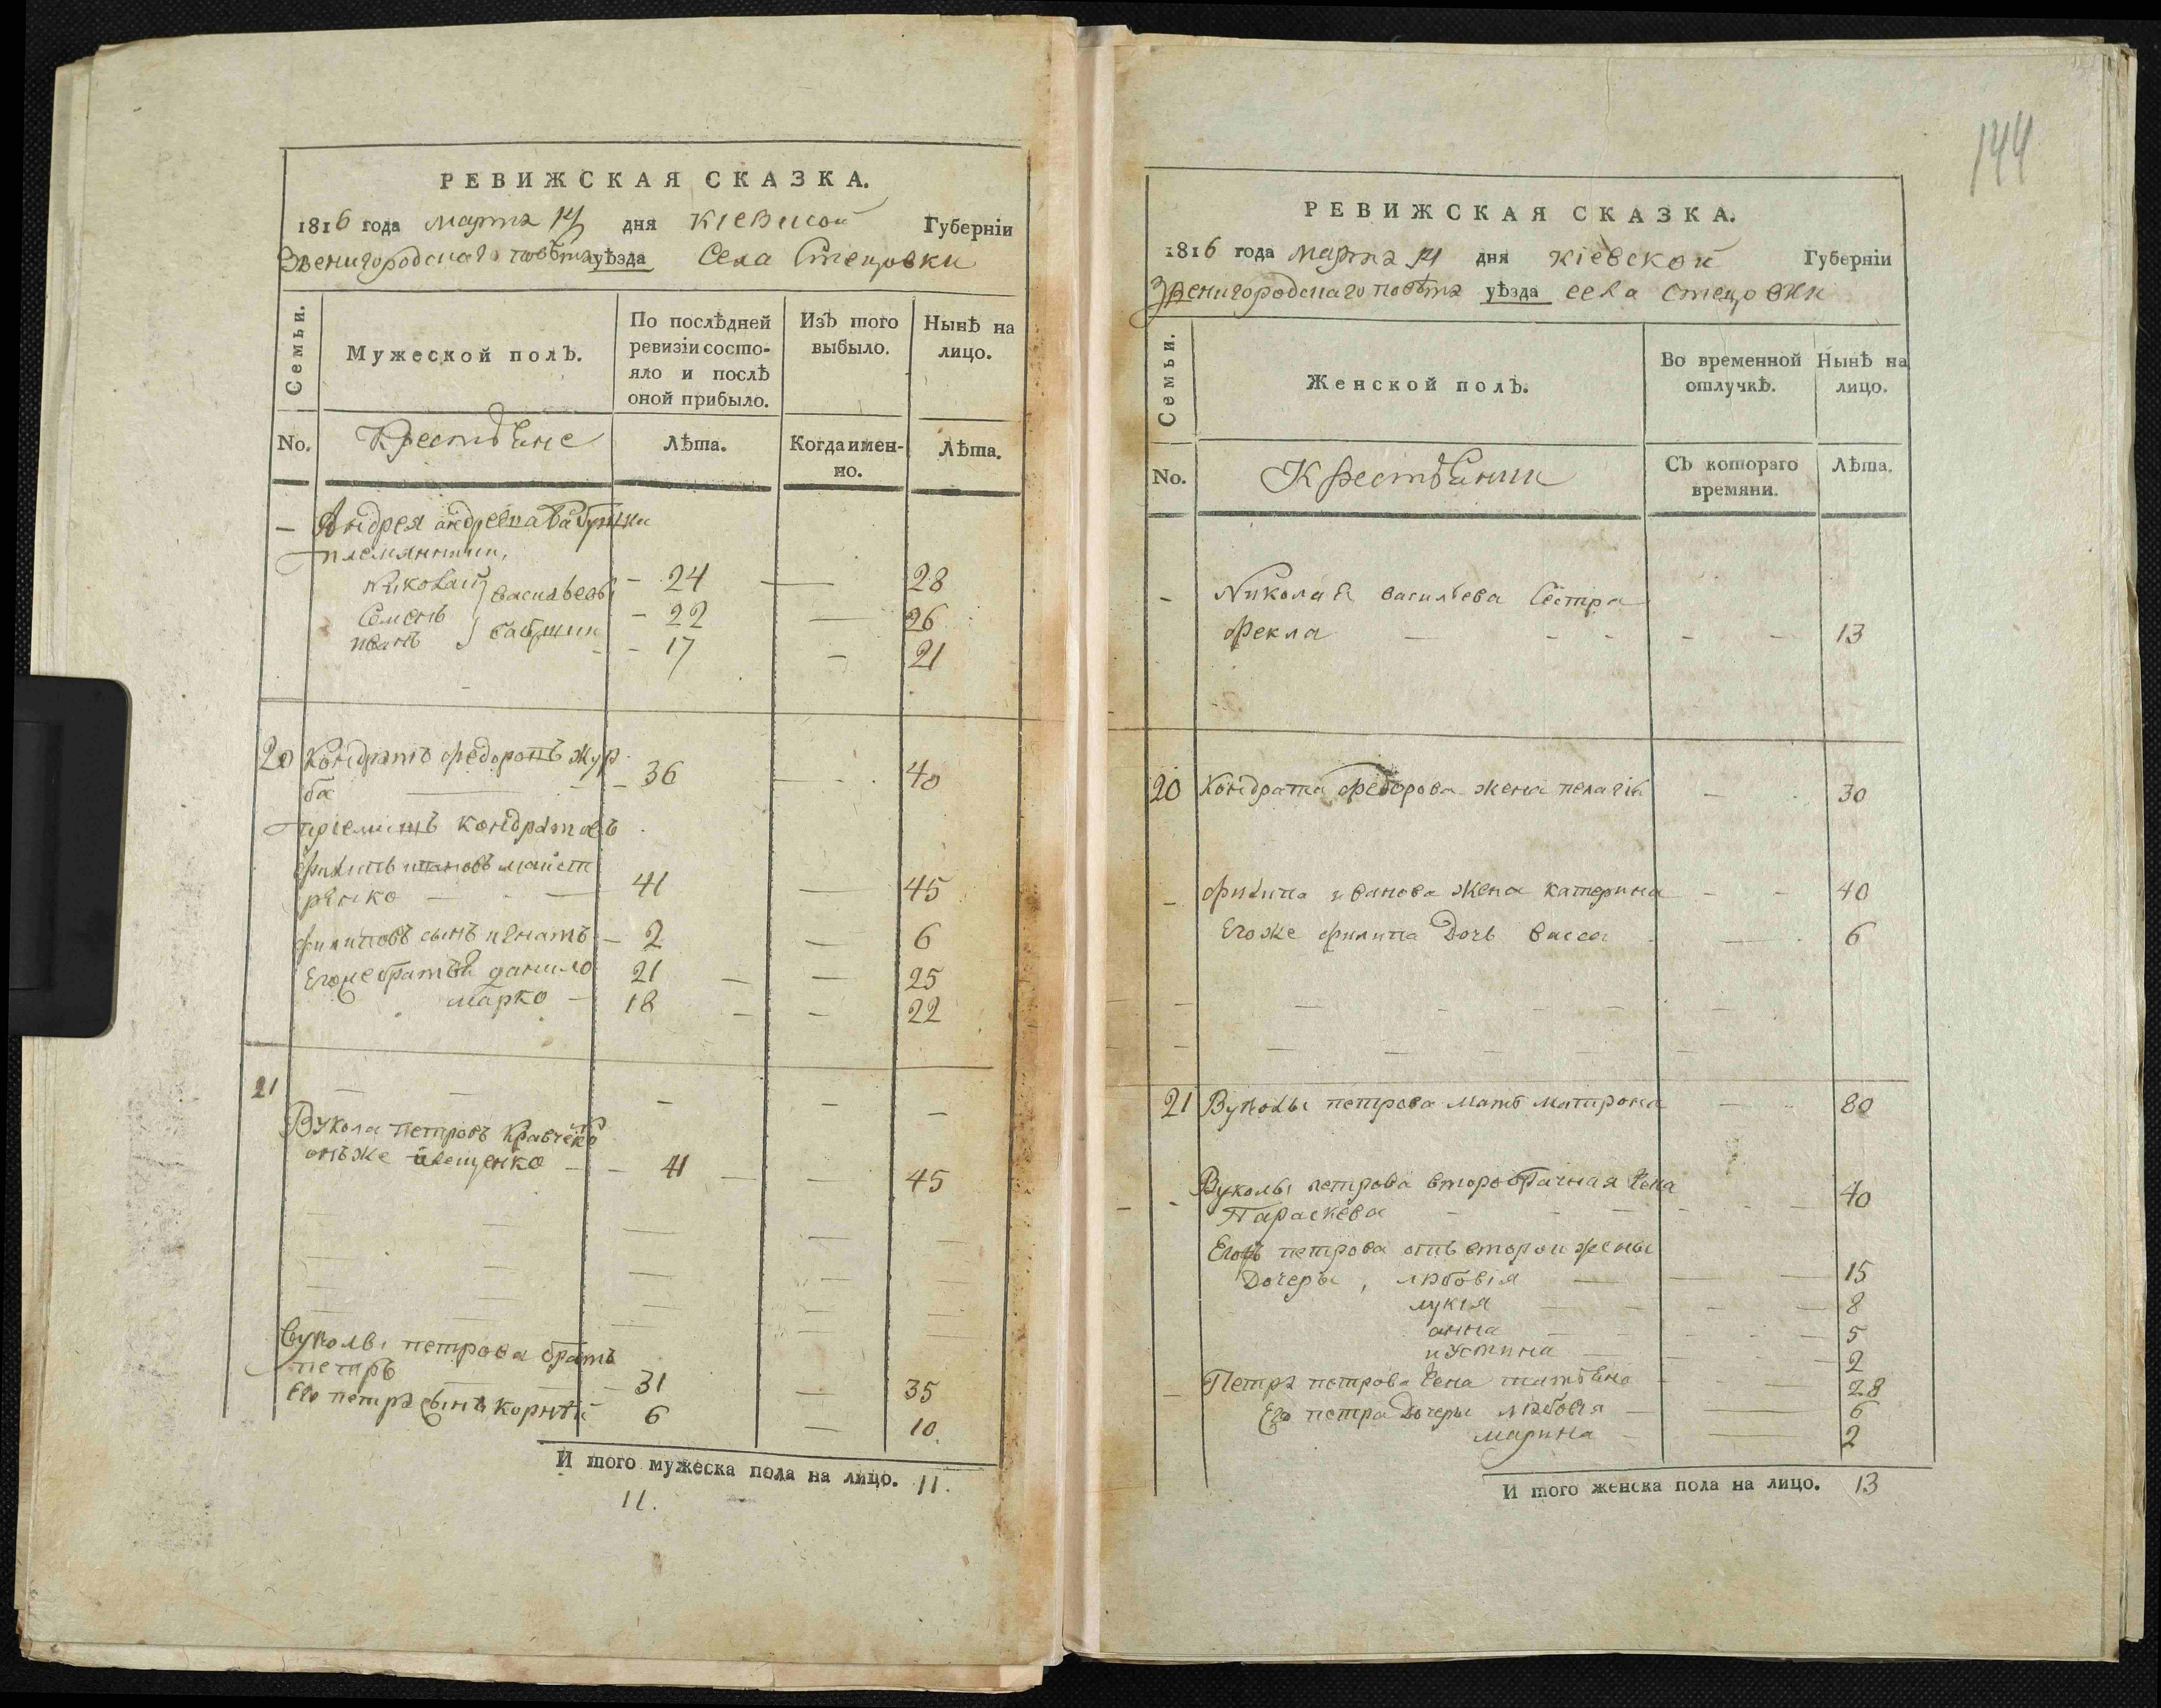 РЕВИЖСКАЯ СКАЗКА.
1816 года марта 14 дня Кіевской Губерніи
Звенигородскаго повѣта уѣзда Села Стецовки
Семьи.
Мужеской полъ.
По послѣдней ревизіи состо-
яло и послѣ
оной прибыло.
Изъ того
выбыло.
Нынѣ на
лицо.
No.
Крестьяне
Лѣта.
Когда имен-
но.
Лѣта.
— Андрея андреева
племянники,
Николай } васильевы — 24 — 28
Семенъ — 22 — 26
иванъ — 17 — 21
20 Кондратъ федоровъ жур
ба — 36 — 40
приемишъ кондратовъ
филипъ ивановъ майст
ренко — 41 — 45
филиповъ сынъ игнатъ — 2 — 6
Егоже братья данило 21 — 25
марко — 18 — 22
21
Вукола петровъ Кравченко
онъже — 41 — 45
Вуколы петрова братъ
петръ — 31 — 35
Его петра сынъ корнѣй 6 — 10
И того мужеска пола на лицо. 11.
11.
144
РЕВИЖСКАЯ СКАЗКА.
1816 года марта 14 дня Кіевской Губерніи
Звенигородскаго повѣта уѣзда села стецовки
Семьи.
Женской полъ.
Во временной
отлучкѣ.
Нынѣ на
лицо.
No.
Крестьянки
Съ котораго
времяни.
Лѣта.
— Николая васильева Сестра
фекла — 13
20 Кондрата федорова жена пелагія — 30
— филипа иванова жена катерина — 40
Егоже филипа дочь васса — 6
21 Вуколы петрова мать матрона — 80
— Вуколы петрова второбрачная жена
Параскева — 40
Егожъ петрова отъ второй жены
Дочеры, любовія — 15
лукія — 8
анна — 5
иустина — 2
— Петра петрова жена татьяна — 28
Его петра дочеры любовія — 6
марина — 2
И того женска пола на лицо. 13